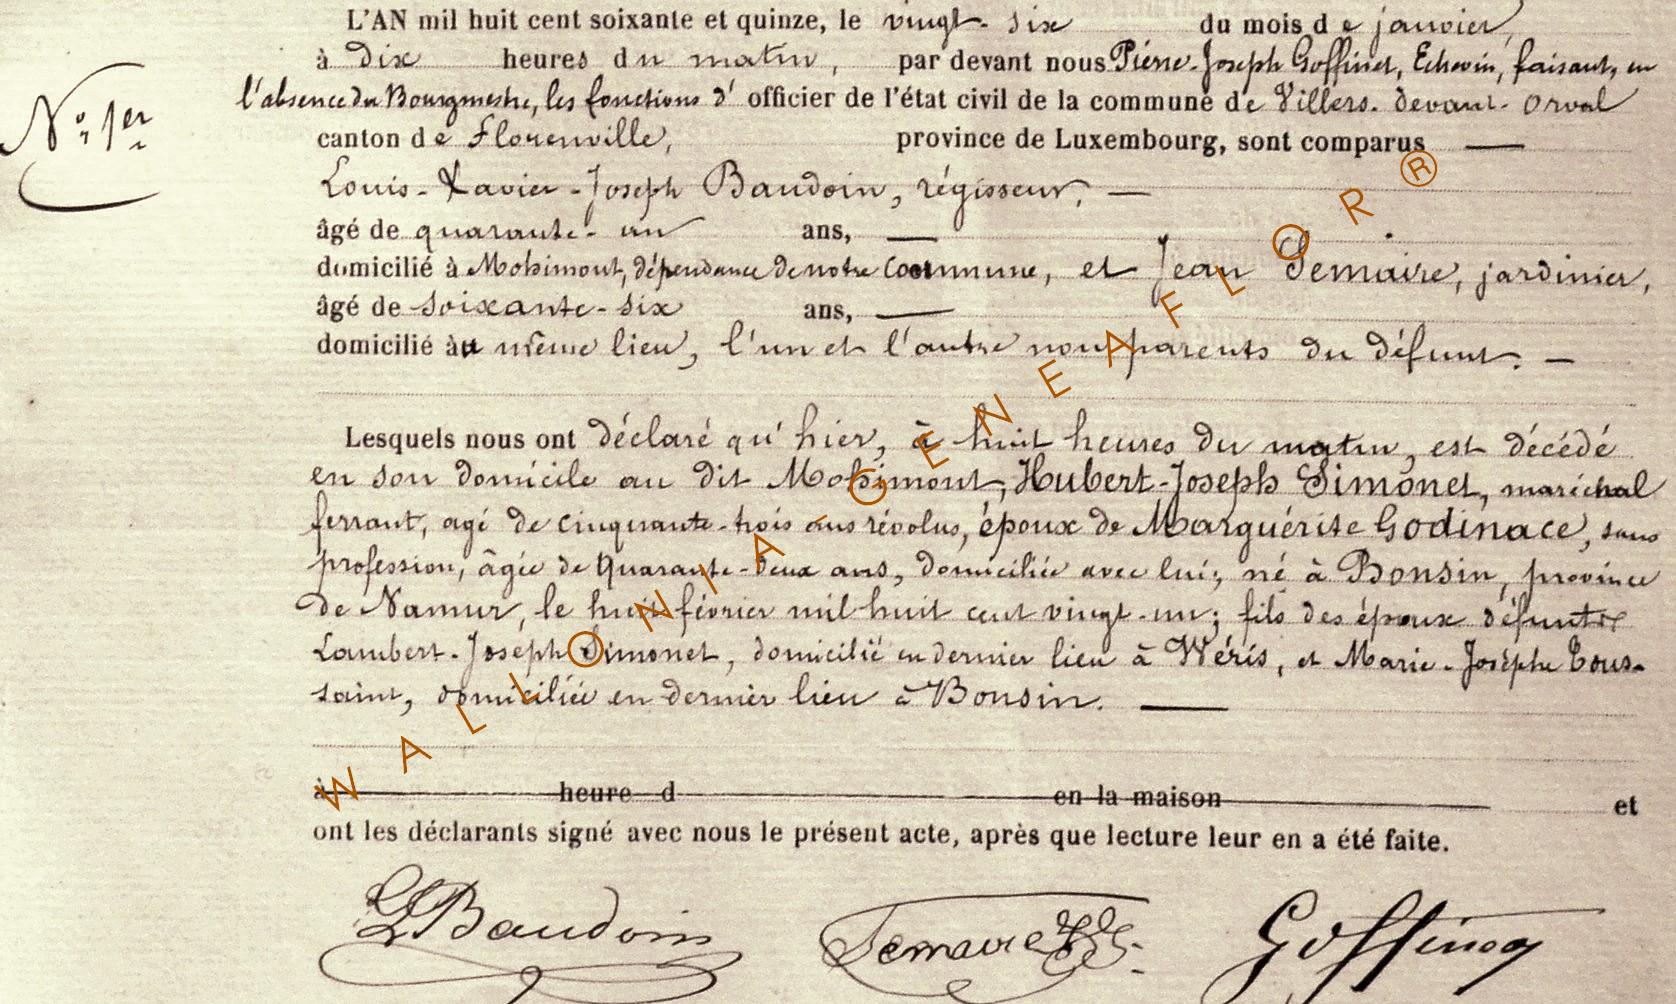 L'AN mil huit cent soixante et quinze, le vingt-six du mois de janvier,
à dix heures du matin, par devant nous Pierre-Joseph Goffinet, Echevin, faisant, en
l'absence du Bourgmestre, les fonctions d' officier de l'état civil de la commune de Villers-devant-Orval
N° 1er
canton de Florenville, province de Luxembourg, sont comparus —
Louis-Xavier-Joseph Baudoin, régisseur, —
âgé de quarante-un ans, —
domicilié à Mohimont, dépendance de notre commune, et Jean Semaire, jardinier,
âgé de soixante-six ans, —
domicilié au même lieu, l'un et l'autre non parents du défunt. —
Lesquels nous ont déclaré qu'hier, à huit heures du matin, est décédé
en son domicile au dit Mohimont, Hubert-Joseph Simonet, maréchal
ferrant, agé de cinquante-trois ans révolus, époux de Marguérite Godinace, sans
profession, âgée de quarante-deux ans, domiciliée avec lui; né à Bonsin, province
de Namur, le huit février mil huit cent vingt-un; fils des époux défunts
Lambert-Joseph Simonet, domicilié en dernier lieu à Wéris, et Marie-Josèphe Tous-
saint, domiciliée en dernier lieu à Bonsin. —
à heure d en la maison et
ont les déclarants signé avec nous le présent acte, après que lecture leur en a été faite.
Baudoin Semaire Goffinet
WALLONIA-GENEAFLOR®